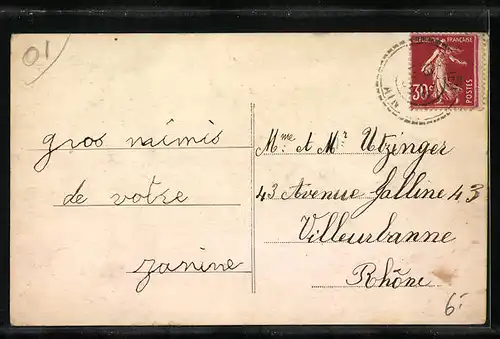 01
RÉPUBLIQUE FRANÇAISE
30c
POSTES
gros mimis
de votre
Janine
Mme et Mr Utzinger
43 Avenue Galline 43
Villeurbanne
Rhône
6.-